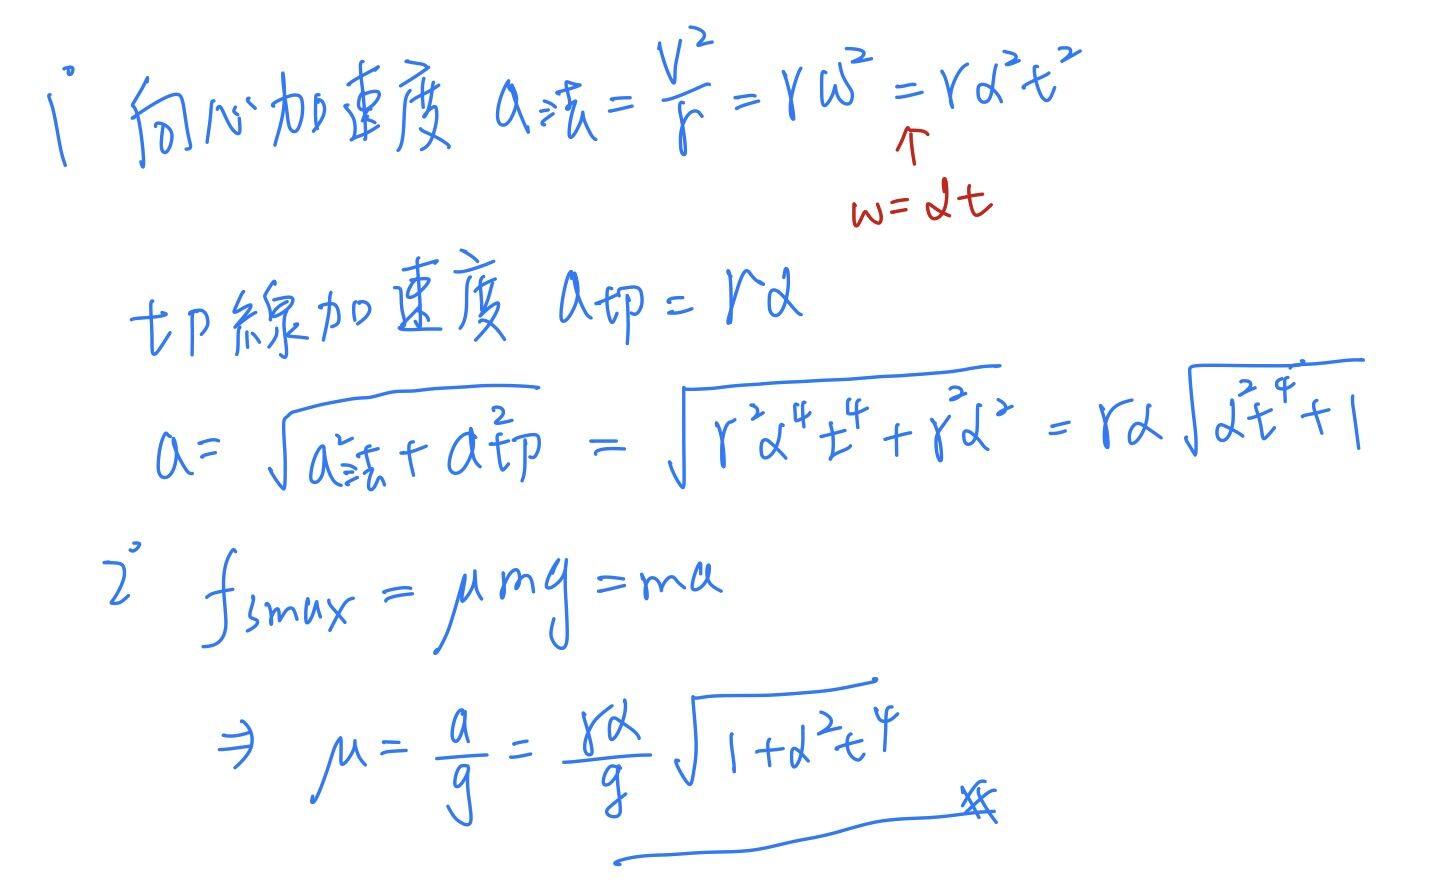 1° 向心加速度 a法 = v²/r = rω² = rα²t²
↑
ω = αt
切線加速度 a切 = rα
a = √(a法² + a切²) = √(r²α⁴t⁴ + r²α²) = rα√(α²t⁴ + 1)
2° fsmax = μmg = ma
⇒ μ = a/g = rα/g √(1 + α²t⁴)